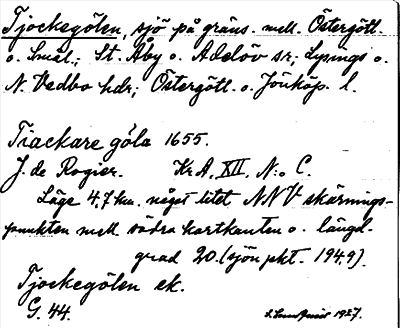 Tjockegölen, sjö på gräns. mell. Östergötl.
o. Smål.; St. Åby o. Adelöv sr; Lysings o.
N. Vedbo hdr; Östergötl. o. Jönköp. l.
Tiackare göla 1655.
J. de Rogier. Kr A, XII, N:o C.
Läge 4,7 km. något litet NNV skärnings-
punkten mell. södra kartkanten o. längd-
grad 20. (sjön pkt. 194,9).
Tjockegölen ek.
G. 44. 1927.